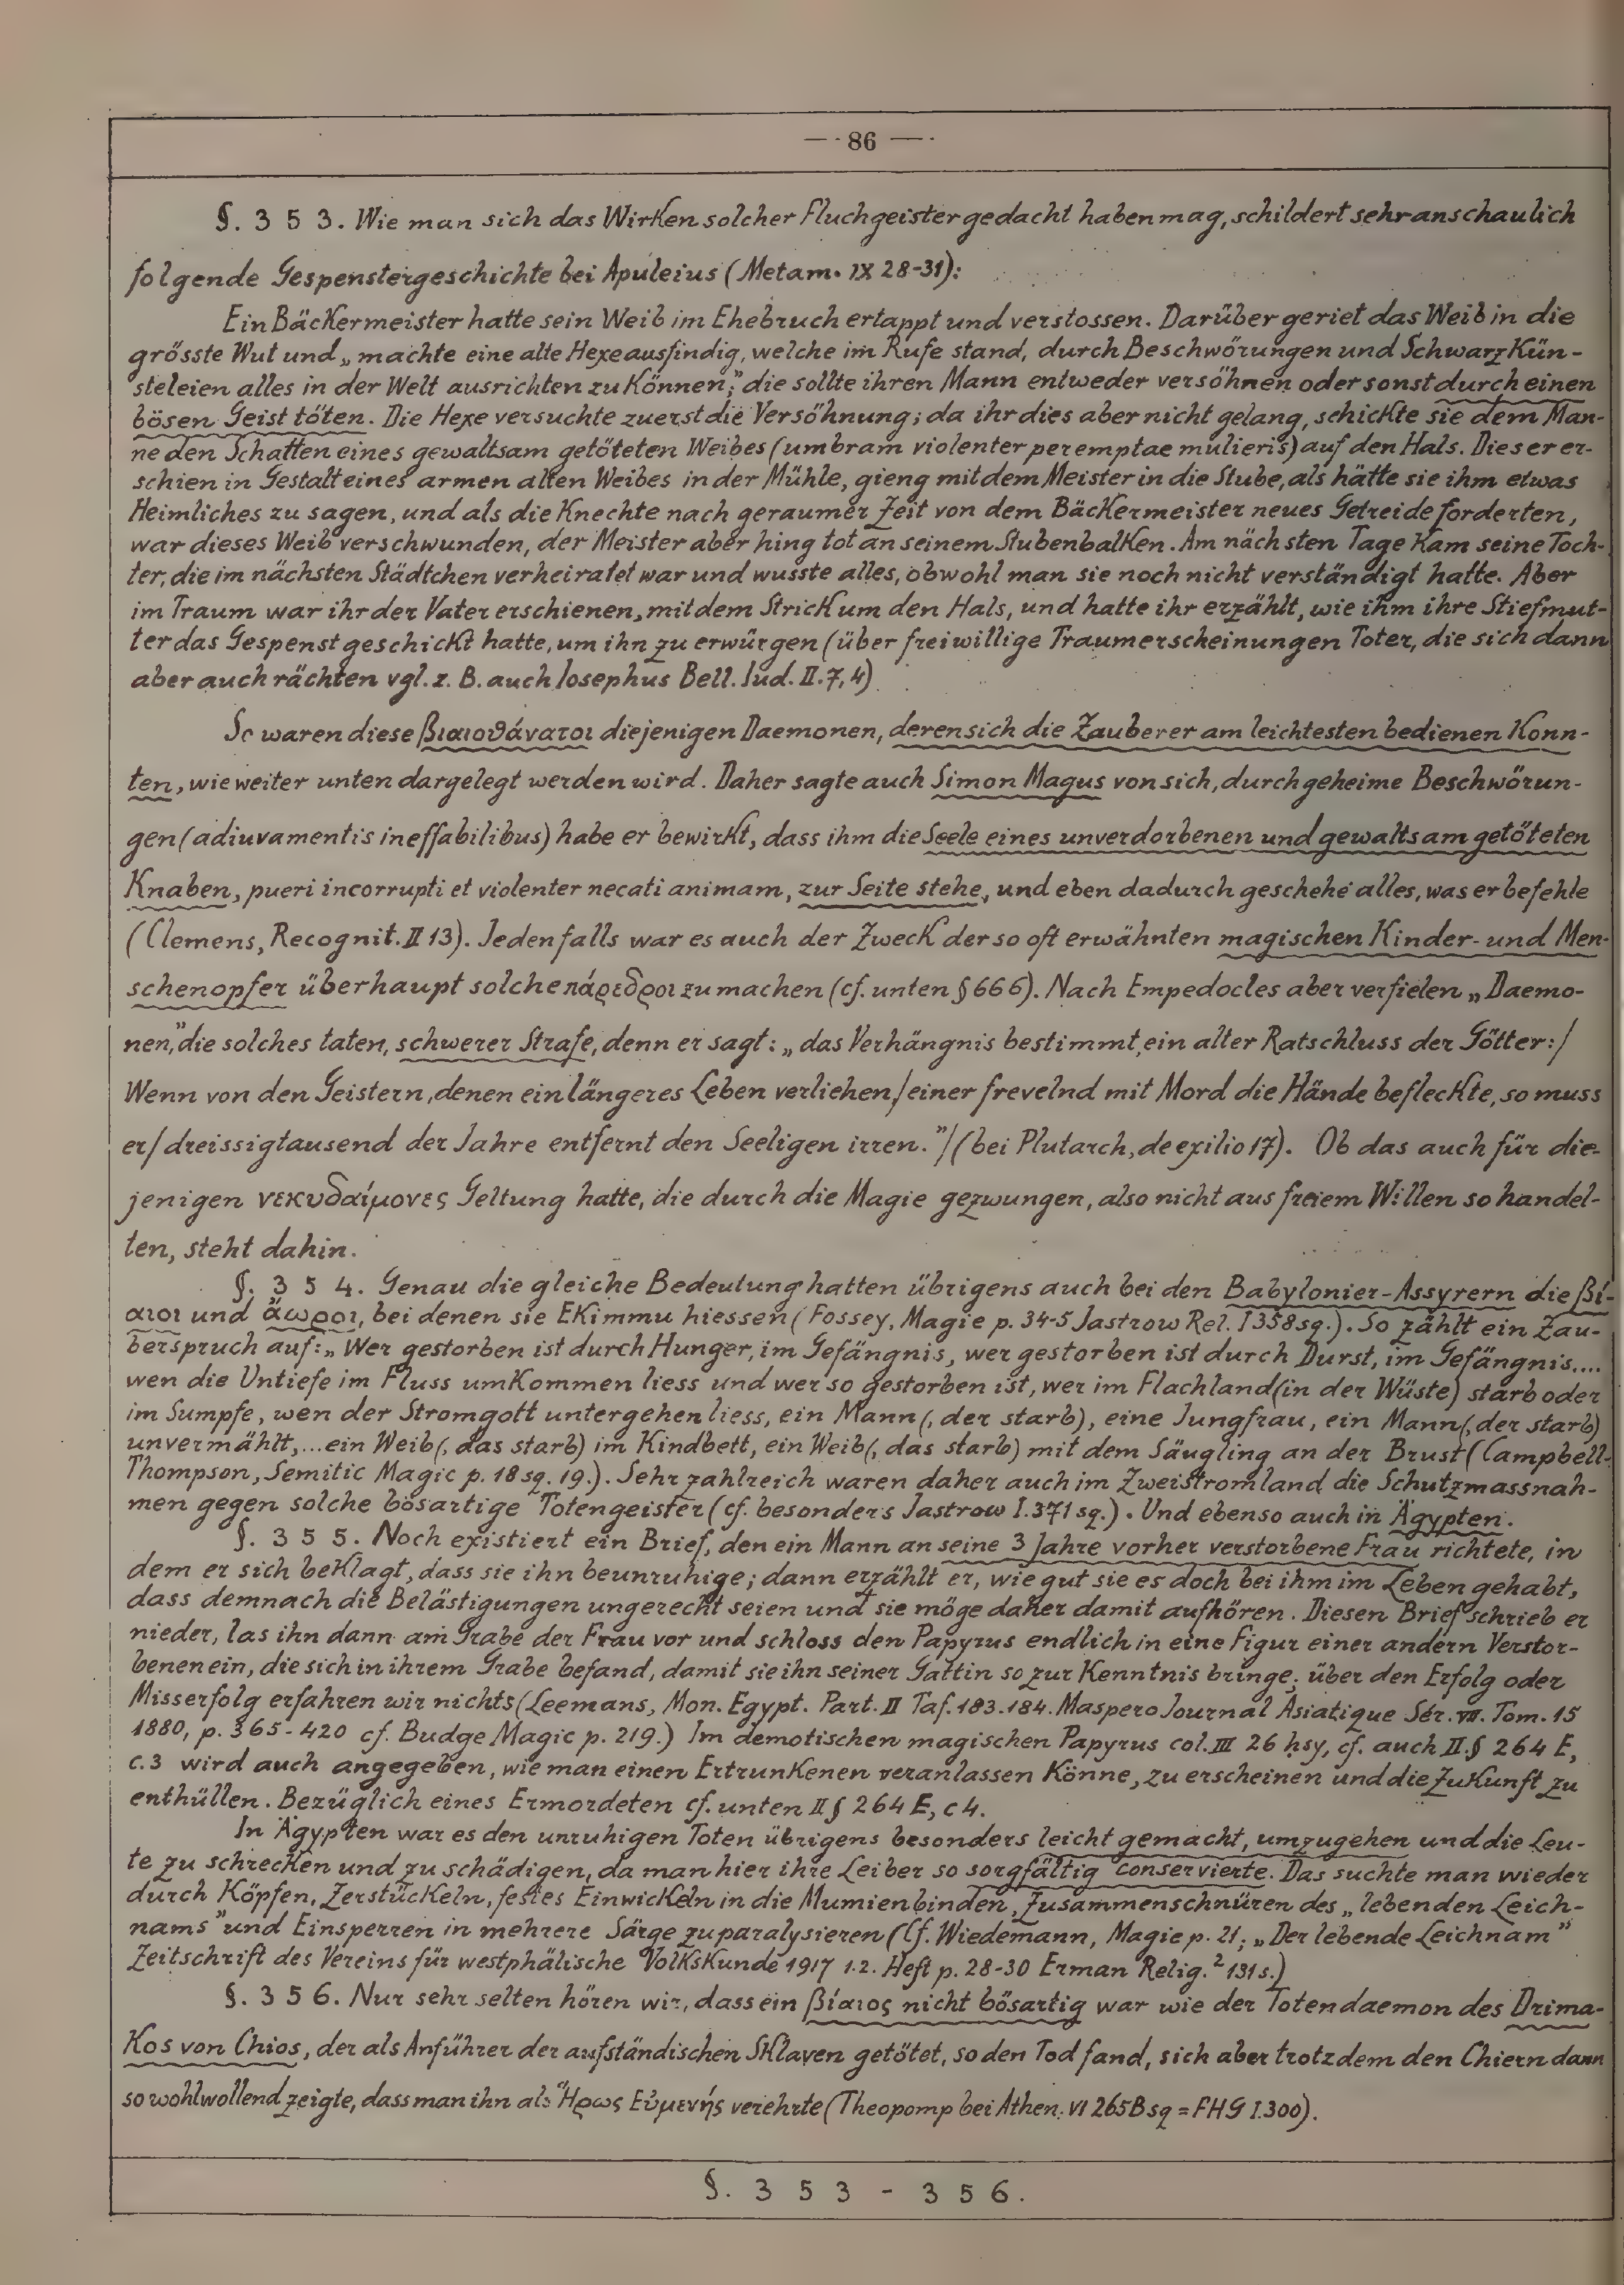 — 86 —
§. 3 5 3. Wie man sich das Wirken solcher Fluchgeister gedacht haben mag, schildert sehr anschaulich
folgende Gespenstergeschichte bei Apuleius (Metam. IX 28-31):
Ein Bäckermeister hatte sein Weib im Ehebruch ertappt und verstossen. Darüber geriet das Weib in die
grösste Wut und „machte eine alte Hexe ausfindig, welche im Rufe stand, durch Beschwörungen und Schwarzkün-
steleien alles in der Welt ausrichten zu können;" die sollte ihren Mann entweder versöhnen oder sonst durch einen
bösen Geist töten. Die Hexe versuchte zuerst die Versöhnung; da ihr dies aber nicht gelang, schickte sie dem Man-
ne den Schatten eines gewaltsam getöteten Weibes (umbram violenter peremptae mulieris) auf den Hals. Dieser er-
schien in Gestalt eines armen alten Weibes in der Mühle, gieng mit dem Meister in die Stube, als hätte sie ihm etwas
Heimliches zu sagen, und als die Knechte nach geraumer Zeit von dem Bäckermeister neues Getreide forderten,
war dieses Weib verschwunden, der Meister aber hing tot an seinem Stubenbalken. Am nächsten Tage kam seine Toch-
ter, die im nächsten Städtchen verheiratet war und wusste alles, obwohl man sie noch nicht verständigt hatte. Aber
im Traum war ihr der Vater erschienen, mit dem Strick um den Hals, und hatte ihr erzählt, wie ihm ihre Stiefmut-
ter das Gespenst geschickt hatte, um ihn zu erwürgen (über freiwillige Traumerscheinungen Toter, die sich dann
aber auch rächten vgl. z. B. auch Iosephus Bell. Iud. II. 7, 4)
So waren diese βιαιοθάνατοι diejenigen Daemonen, deren sich die Zauberer am leichtesten bedienen konn-
ten, wie weiter unten dargelegt werden wird. Daher sagte auch Simon Magus von sich, durch geheime Beschwörun-
gen (adiuvamentis ineffabilibus) habe er bewirkt, dass ihm die Seele eines unverdorbenen und gewaltsam getöteten
Knaben, pueri incorrupti et violenter necati animam, zur Seite stehe, und eben dadurch geschehe alles, was er befehle
(Clemens, Recognit. II 13). Jedenfalls war es auch der Zweck der so oft erwähnten magischen Kinder- und Men-
schenopfer überhaupt solche πάρεδροι zu machen (cf. unten § 666). Nach Empedocles aber verfielen „Daemo-
nen," die solches taten, schwerer Strafe, denn er sagt: „das Verhängnis bestimmt, ein alter Ratschluss der Götter:/
Wenn von den Geistern, denen ein längeres Leben verliehen,/ einer frevelnd mit Mord die Hände befleckte, so muss
er/ dreissigtausend der Jahre entfernt den Seeligen irren."/ (bei Plutarch, de exilio 17). Ob das auch für die-
jenigen νεκυδαίμονες Geltung hatte, die durch die Magie gezwungen, also nicht aus freiem Willen so handel-
ten, steht dahin.
§. 3 5 4. Genau die gleiche Bedeutung hatten übrigens auch bei den Babylonier-Assyrern die βί-
αιοι und ἄωροι, bei denen sie Ekimmu hiessen (Fossey, Magie p. 34-5 Jastrow Rel. I 358 sq.). So zählt ein Zau-
berspruch auf: „Wer gestorben ist durch Hunger, im Gefängnis, wer gestorben ist durch Durst, im Gefängnis....
wen die Untiefe im Fluss umkommen liess und wer so gestorben ist, wer im Flachland (in der Wüste) starb oder
im Sumpfe, wen der Stromgott untergehen liess, ein Mann (, der starb), eine Jungfrau, ein Mann (, der starb)
unvermählt,... ein Weib (, das starb) im Kindbett, ein Weib (, das starb) mit dem Säugling an der Brust (Campbell-
Thompson, Semitic Magic p. 18 sq. 19.). Sehr zahlreich waren daher auch im Zweistromland die Schutzmassnah-
men gegen solche bösartige Totengeister (cf. besonders Jastrow I. 371 sq.). Und ebenso auch in Ägypten.
§. 3 5 5. Noch existiert ein Brief, den ein Mann an seine 3 Jahre vorher verstorbene Frau richtete, in
dem er sich beklagt, dass sie ihn beunruhige; dann erzählt er, wie gut sie es doch bei ihm im Leben gehabt,
dass demnach die Belästigungen ungerecht seien und sie möge daher damit aufhören. Diesen Brief schrieb er
nieder, las ihn dann am Grabe der Frau vor und schloss den Papyrus endlich in eine Figur einer andern Verstor-
benen ein, die sich in ihrem Grabe befand, damit sie ihn seiner Gattin so zur Kenntnis bringe; über den Erfolg oder
Misserfolg erfahren wir nichts (Leemans, Mon. Egypt. Part. II Taf. 183. 184. Maspero Journal Asiatique Sér. VII. Tom. 15
1880, p. 365-420 cf. Budge Magic p. 219.) Im demotischen magischen Papyrus col. III 26 hsy, cf. auch II. § 264 E,
c. 3 wird auch angegeben, wie man einen Ertrunkenen veranlassen könne, zu erscheinen und die Zukunft zu
enthüllen. Bezüglich eines Ermordeten cf. unten II § 264 E, c 4.
In Ägypten war es den unruhigen Toten übrigens besonders leicht gemacht, umzugehen und die Leu-
te zu schrecken und zu schädigen, da man hier ihre Leiber so sorgfältig conservierte. Das suchte man wieder
durch Köpfen, Zerstückeln, festes Einwickeln in die Mumienbinden, Zusammenschnüren des „lebenden Leich-
nams" und Einsperren in mehrere Särge zu paralysieren (Cf. Wiedemann, Magie p. 21; „Der lebende Leichnam"
Zeitschrift des Vereins für westphälische Volkskunde 1917 1.2. Heft p. 28-30 Erman Relig.² 131 s.)
§. 3 5 6. Nur sehr selten hören wir, dass ein βίαιος nicht bösartig war wie der Totendaemon des Drima-
kos von Chios, der als Anführer der aufständischen Sklaven getötet, so den Tod fand, sich aber trotzdem den Chiern dann
so wohlwollend zeigte, dass man ihn als Ἥρως Εὐμενής verehrte (Theopomp bei Athen. VI 265 B sq = FHG I. 300).
§. 3 5 3 - 3 5 6.